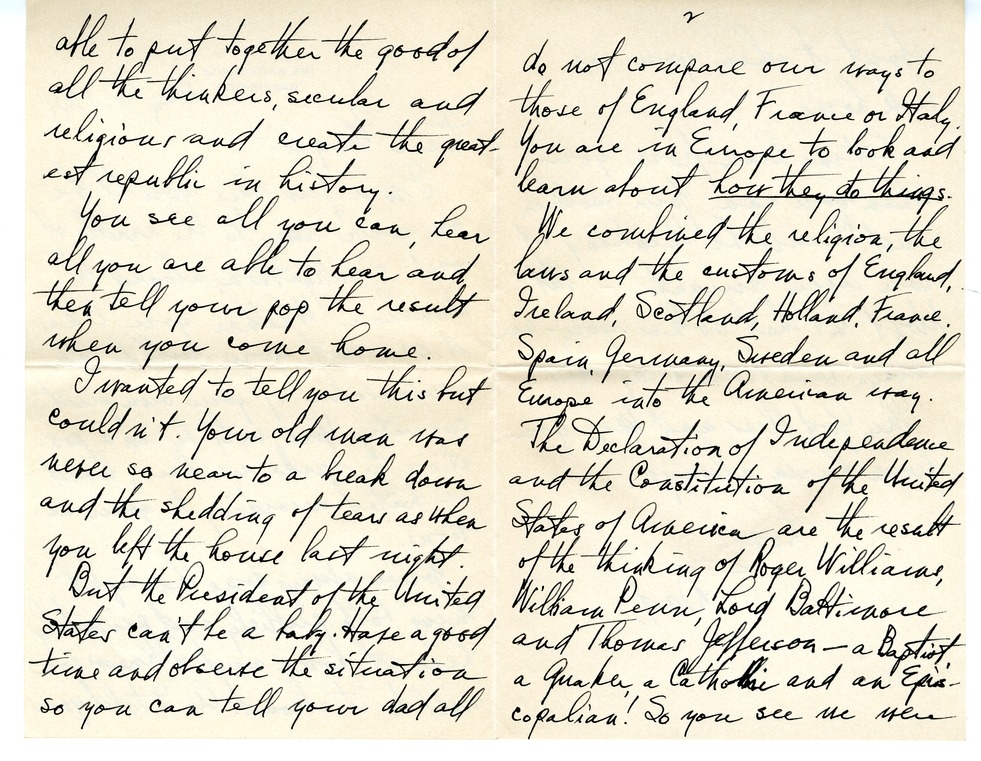 2
do not compare our ways to
those of England, France or Italy.
You are in Europe to look and
learn about how they do things.
We combined the religion, the
laws and the customs of England,
Ireland, Scotland, Holland, France,
Spain, Germany, Sweden and all
Europe into the American way.
The Declaration of Independence
and the Constitution of the United
States of America are the result
of the thinking of Roger Williams,
William Penn, Lord Baltimore
and Thomas Jefferson — a Baptist,
a Quaker, a Catholic and an Epis-
copalian! So you see we were
able to put together the good of
all the thinkers, secular and
religious and create the great-
est republic in history.
You see all you can, hear
all you are able to hear and
then tell your pop the result
when you come home.
I wanted to tell you this but
couldn't. Your old man was
never so near to a break down
and the shedding of tears as when
you left the house last night.
But the President of the United
States can't be a baby. Have a good
time and observe the situation
so you can tell your dad all